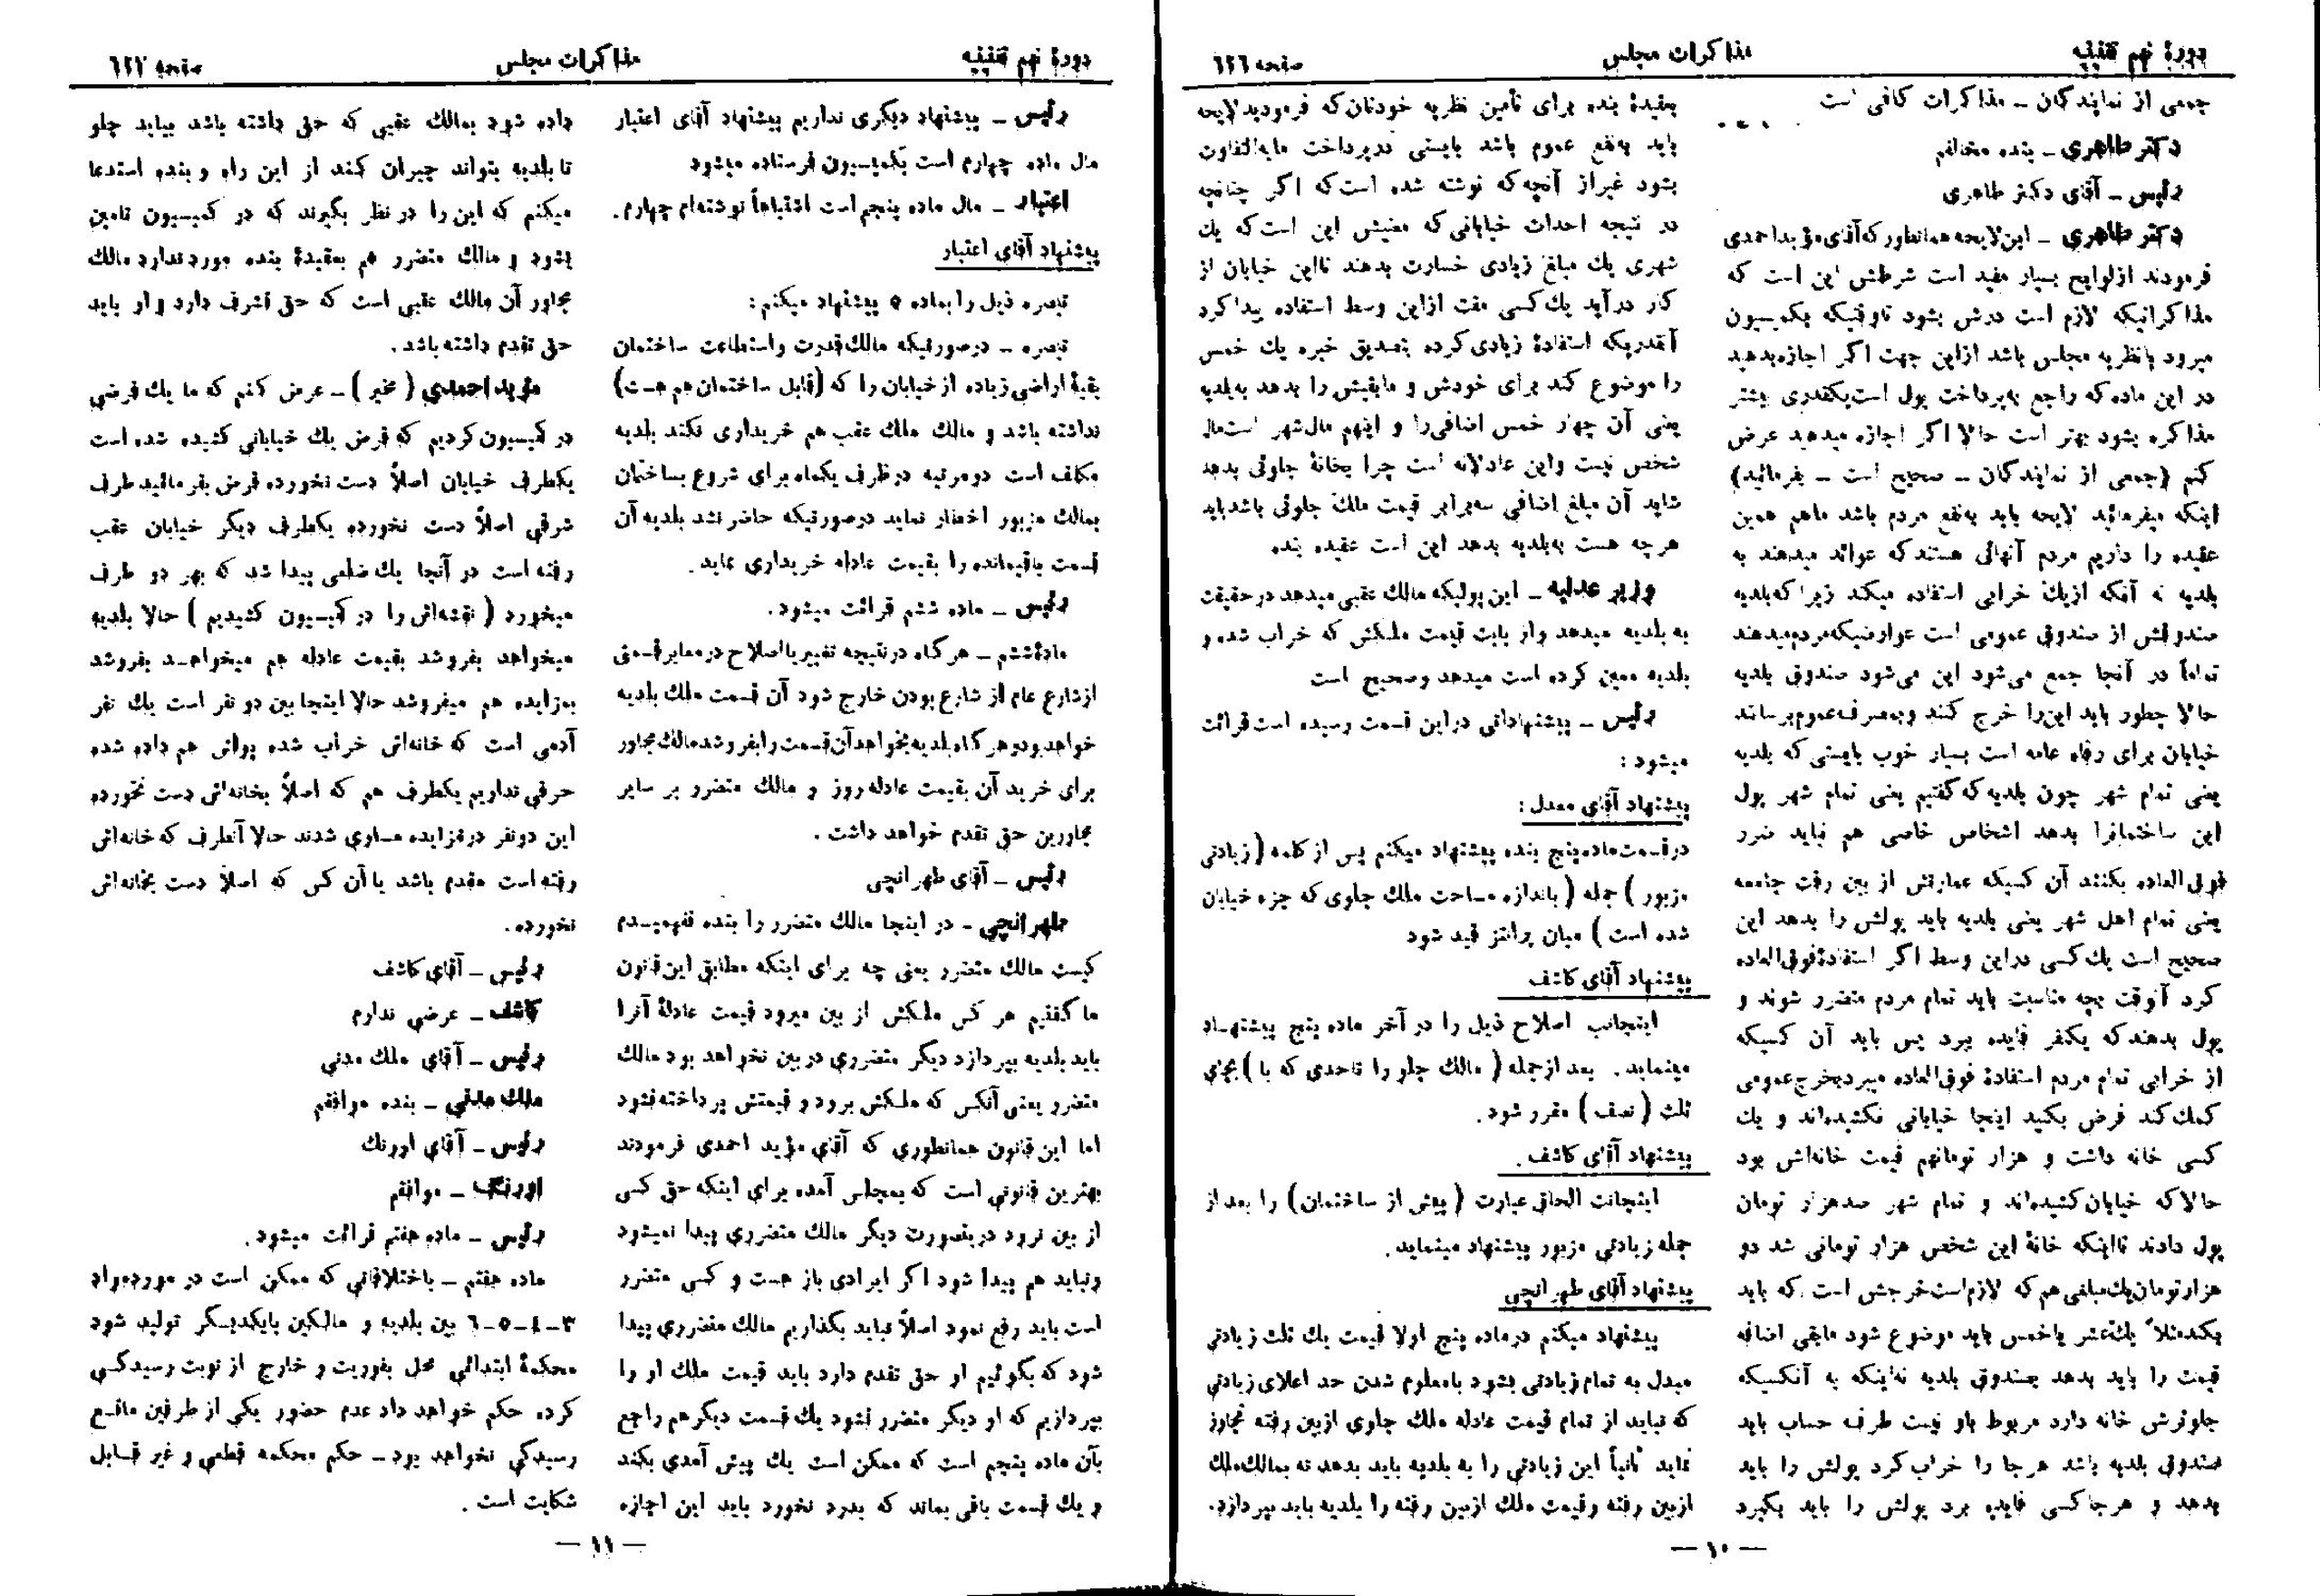 دورهٔ نهم تقنینیه
مذاکرات مجلس
صفحه ٦٢٦
جمعی از نمایندگان ـ مذاکرات کافی است
دکتر طاهری ـ بنده مخالفم
رئیس ـ آقای دکتر طاهری
دکتر طاهری ـ این لایحه همانطور که آقای مؤید احمدی
فرمودند از لوایح بسیار مفید است شرطش این است که
مذاکراتیکه لازم است درش بشود تا وقتیکه بکمیسیون
میرود با نظریه مجلس باشد از این جهت اگر اجازه بدهید
در این ماده که راجع به پرداخت پول است یکقدری بیشتر
مذاکره بشود بهتر است حالا اگر اجازه میدهید عرض
کنم (جمعی از نمایندگان ـ صحیح است ـ بفرمائید)
اینکه میفرمائید لایحه باید به نفع مردم باشد ماهم همین
عقیده را داریم مردم آنهائی هستند که عوائد میدهند به
بلدیه نه آنکه از یك خرابی استفاده میکند زیرا که بلدیه
صندوقش از صندوق عمومی است عوارضیکه مردم میدهند
تماماً در آنجا جمع می‌شود این می‌شود صندوق بلدیه
حالا چطور باید این را خرج کنند و بمصرف عموم برسانند
خیابان برای رفاه عامه است بسیار خوب بایستی که بلدیه
یعنی تمام شهر چون بلدیه که گفتیم یعنی تمام شهر پول
این ساختمانرا بدهد اشخاص خاصی هم نباید ضرر
فوق العاده بکنند آن کسیکه عمارتش از بین رفت جامعه
یعنی تمام اهل شهر یعنی بلدیه باید پولش را بدهد این
صحیح است یك کسی در این وسط اگر استفادهٔ فوق العاده
کرد آنوقت بچه مناسبت باید تمام مردم متضرر شوند و
پول بدهند که یکنفر فایده ببرد پس باید آن کسیکه
از خرابی تمام مردم استفادهٔ فوق العاده میبرد بخرج عمومی
کمك کند فرض بکنید اینجا خیابانی نکشیده‌اند و یك
کسی خانه داشت و هزار تومانهم قیمت خانه‌اش بود
حالا که خیابان کشیده‌اند و تمام شهر صدهزار تومان
پول دادند تا اینکه خانهٔ این شخص هزار تومانی شد دو
هزار تومان یك مبلغی هم که لازم است خرجش است که باید
بکند مثلاً یك عشر یا خمس باید موضوع شود مابقی اضافه
قیمت را باید بدهد بصندوق بلدیه نه اینکه به آنکسیکه
جلوترش خانه دارد مربوط باو نیست طرف حساب باید
صندوق بلدیه باشد هرجا را خراب کرد پولش را باید
بدهد و هرجا کسی فایده برد پولش را باید بگیرد
بعقیدهٔ بنده برای تأمین نظریه خودتان که فرمودید لایحه
باید به نفع عموم باشد بایستی در پرداخت مابه‌التفاوت
بشود غیر از آنچه که نوشته شده است که اگر چنانچه
در نتیجه احداث خیابانی که معنیش این است که یك
شهری یك مبلغ زیادی خسارت بدهند تا این خیابان از
کار درآید یك کسی مفت از این وسط استفاده پیدا کرد
آنقدریکه استفادهٔ زیادی کرده بتصدیق خبره یك خمس
را موضوع کند برای خودش و مابقیش را بدهد به بلدیه
یعنی آن چهار خمس اضافی را و اینهم مال شهر است مال
شخص نیست و این عادلانه است چرا بخانهٔ جلوئی بدهد
شاید آن مبلغ اضافی سه برابر قیمت ملك جلوئی باشد باید
هرچه هست به بلدیه بدهد این است عقیده بنده
وزیر عدلیه ـ این پولیکه مالك عقبی میدهد در حقیقت
به بلدیه میدهد و از بابت قیمت ملکش که خراب شده و
بلدیه معین کرده است میدهد و صحیح است
رئیس ـ پیشنهاداتی در این قسمت رسیده است قرائت
میشود :
پیشنهاد آقای معدل :
در قسمت ماده پنج بنده پیشنهاد میکنم پس از کلمه (زیادتی
مزبور) جمله (باندازه مساحت ملك جلوی که جزء خیابان
شده است) میان پرانتز قید شود
پیشنهاد آقای کاشف
اینجانب اصلاح ذیل را در آخر ماده پنج پیشنهاد
مینماید. بعد از جمله (مالك جلو را تا حدی که با) بجای
ثلث (نصف) مقرر شود.
پیشنهاد آقای کاشف.
اینجانب الحاق عبارت (پیش از ساختمان) را بعد از
جمله زیادتی مزبور پیشنهاد مینماید.
پیشنهاد آقای طهرانچی
پیشنهاد میکنم در ماده پنج اولا قیمت یك ثلث زیادتی
مبدل به تمام زیادتی بشود با معلوم شدن حد اعلای زیادتی
که نباید از تمام قیمت عادله ملك جلوی از بین رفته تجاوز
نماید ثانیاً این زیادتی را به بلدیه باید بدهد نه بمالك ملك
از بین رفته و قیمت ملك از بین رفته را بلدیه باید بپردازد.
ـ ١٠ ـ
دورهٔ نهم تقنینیه
مذاکرات مجلس
صفحه ٦٢٧
رئیس ـ پیشنهاد دیگری نداریم پیشنهاد آقای اعتبار
مال ماده چهارم است بکمیسیون فرستاده میشود
اعتبار ـ مال ماده پنجم است اشتباهاً نوشته‌ام چهارم.
پیشنهاد آقای اعتبار
تبصره ذیل را بماده ٥ پیشنهاد میکنم:
تبصره ـ در صورتیکه مالك قدرت و استطاعت ساختمان
بقیهٔ اراضی زیاده از خیابان را که (قابل ساختمان هم هست)
نداشته باشد و مالك ملك عقب هم خریداری نکند بلدیه
مکلف است دو مرتبه در ظرف یکماه برای شروع بساختمان
بمالك مزبور اخطار نماید در صورتیکه حاضر نشد بلدیه آن
قسمت باقیمانده را بقیمت عادله خریداری نماید.
رئیس ـ ماده ششم قرائت میشود.
مادهٔ ششم ـ هرگاه در نتیجه تغییر یا اصلاح در معابر قسمتی
از شارع عام از شارع بودن خارج شود آن قسمت ملك بلدیه
خواهد بود و هرگاه بلدیه بخواهد آن قسمت را بفروشد مالك مجاور
برای خرید آن بقیمت عادله روز و مالك متضرر بر سایر
مجاورین حق تقدم خواهد داشت.
رئیس ـ آقای طهرانچی
طهرانچی ـ در اینجا مالك متضرر را بنده نفهمیدم
کیست مالك متضرر یعنی چه برای اینکه مطابق این قانون
ما گفتیم هر کس ملکش از بین میرود قیمت عادلهٔ آنرا
باید بلدیه بپردازد دیگر متضرری در بین نخواهد بود مالك
متضرر یعنی آنکس که ملکش برود و قیمتش پرداخته نشود
اما این قانون همانطوری که آقای مؤید احمدی فرمودند
بهترین قانونی است که بمجلس آمده برای اینکه حق کسی
از بین نرود در بنصورت دیگر مالك متضرری پیدا نمیشود
و نباید هم پیدا شود اگر ایرادی باز هست و کسی متضرر
است باید رفع نمود اصلاً نباید بگذاریم مالك متضرری پیدا
شود که بگوئیم او حق تقدم دارد باید قیمت ملك او را
بپردازیم که او دیگر متضرر نشود یك قسمت دیگر هم راجع
بآن ماده پنجم است که ممکن است یك پیش آمدی بکند
و یك قسمت باقی بماند که بدرد نخورد باید این اجازه
داده شود بمالك عقبی که حق داشته باشد بیاید جلو
تا بلدیه بتواند جبران کند از این راه و بنده استدعا
میکنم که این را در نظر بگیرند که در کمیسیون تامین
بشود و مالك متضرر هم بعقیدهٔ بنده مورد ندارد مالك
مجاور آن مالك عقبی است که حق تشرف دارد و او باید
حق تقدم داشته باشد.
مؤید احمدی (مخبر) ـ عرض کنم که ما یك فرضی
در کمیسیون کردیم که فرض یك خیابانی کشیده شده است
یکطرف خیابان اصلاً دست نخورده فرض بفرمائید طرف
شرقی اصلاً دست نخورده یکطرف دیگر خیابان عقب
رفته است در آنجا یك ضلعی پیدا شد که بهر دو طرف
میخورد (نقشه‌اش را در کمیسیون کشیدیم) حالا بلدیه
میخواهد بفروشد بقیمت عادله هم میخواهد بفروشد
بمزایده هم میفروشد حالا اینجا بین دو نفر است یك نفر
آدمی است که خانه‌اش خراب شده پولش هم داده شده
حرفی نداریم یکطرف هم که اصلاً بخانه‌اش دست نخورده
این دو نفر در مزایده مساوی شدند حالا آنطرف که خانه‌اش
رفته است مقدم باشد یا آن کس که اصلاً دست بخانه‌اش
نخورده.
رئیس ـ آقای کاشف
کاشف ـ عرضی ندارم
رئیس ـ آقای ملك مدنی
ملك مدنی ـ بنده موافقم
رئیس ـ آقای اورنك
اورنگ ـ موافقم
رئیس ـ ماده هفتم قرائت میشود.
ماده هفتم ـ باختلافاتی که ممکن است در مورد مواد
٣ـ٤ـ٥ـ٦ بین بلدیه و مالکین بایکدیگر تولید شود
محکمهٔ ابتدائی محل بفوریت و خارج از نوبت رسیدگی
کرده حکم خواهد داد عدم حضور یکی از طرفین مانع
رسیدگی نخواهد بود ـ حکم محکمه قطعی و غیر قابل
شکایت است.
ـ ١١ ـ